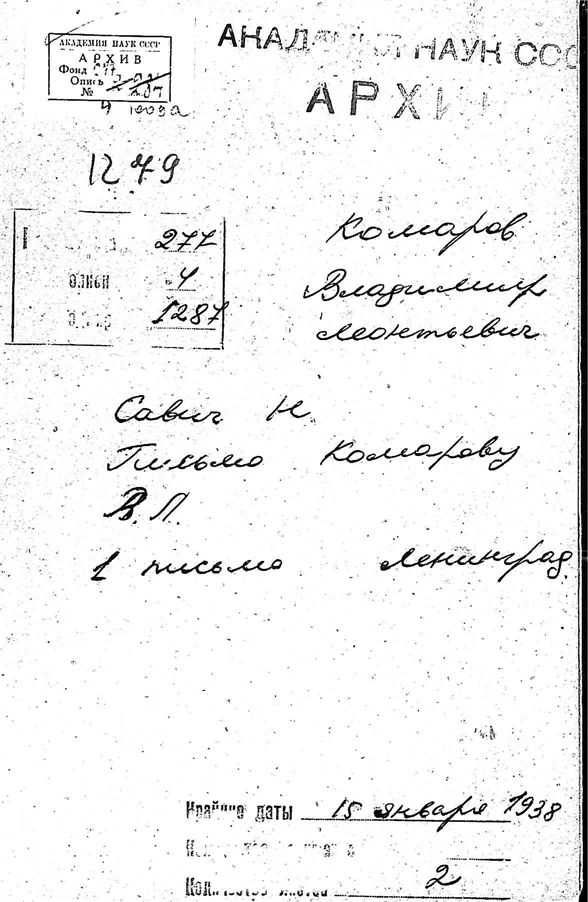 АКАДЕМИЯ НАУК СССР
АРХИВ
Фонд
Опись
№
АКАД НАУК ССС
АРХИ
1279
277
опись 4
1287
Комаров
Владимир
Леонтьевич
Савич Н.
Письмо Комарову
В.Л.
1 письмо Ленинград.
Крайние даты 15 января 1938
Количество листов 2